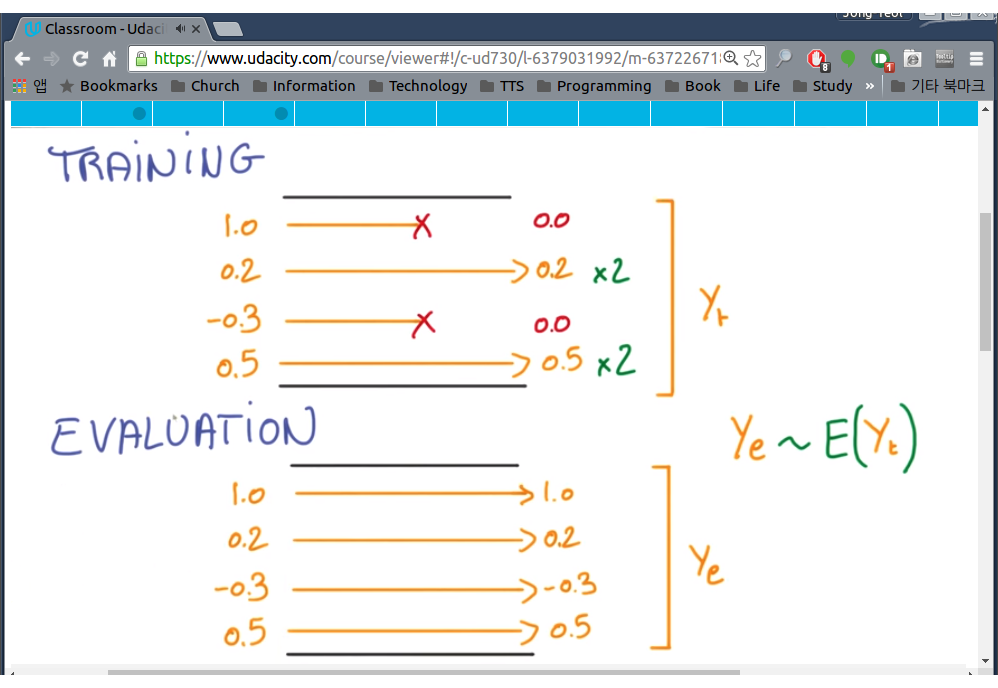 Jong Yeol
Classroom - Udaci
https://www.udacity.com/course/viewer#!/c-ud730/l-6379031992/m-637226718
8
1
앱 Bookmarks Church Information Technology TTS Programming Book Life Study » 기타 북마크
TRAINING
1.0 X 0.0
0.2 0.2 x2
-0.3 X 0.0
0.5 0.5 x2
Yt
EVALUATION
Ye ~ E(Yt)
1.0 1.0
0.2 0.2
-0.3 -0.3
0.5 0.5
Ye